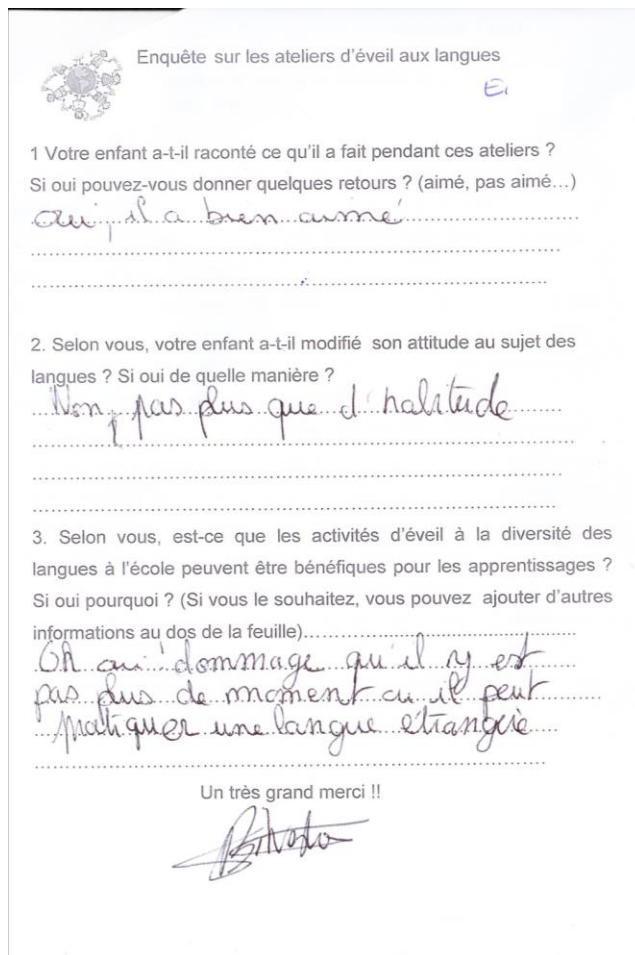 Enquête sur les ateliers d'éveil aux langues
E
1 Votre enfant a-t-il raconté ce qu'il a fait pendant ces ateliers ?
Si oui pouvez-vous donner quelques retours ? (aimé, pas aimé…)
oui, il a bien aimé
2. Selon vous, votre enfant a-t-il modifié son attitude au sujet des
langues ? Si oui de quelle manière ?
Non, pas plus que d'habitude
3. Selon vous, est-ce que les activités d'éveil à la diversité des
langues à l'école peuvent être bénéfiques pour les apprentissages ?
Si oui pourquoi ? (Si vous le souhaitez, vous pouvez ajouter d'autres
informations au dos de la feuille)
Oh oui ! dommage qu'il y est
pas plus de moment ou il peut
pratiquer une langue étrangère
Un très grand merci !!